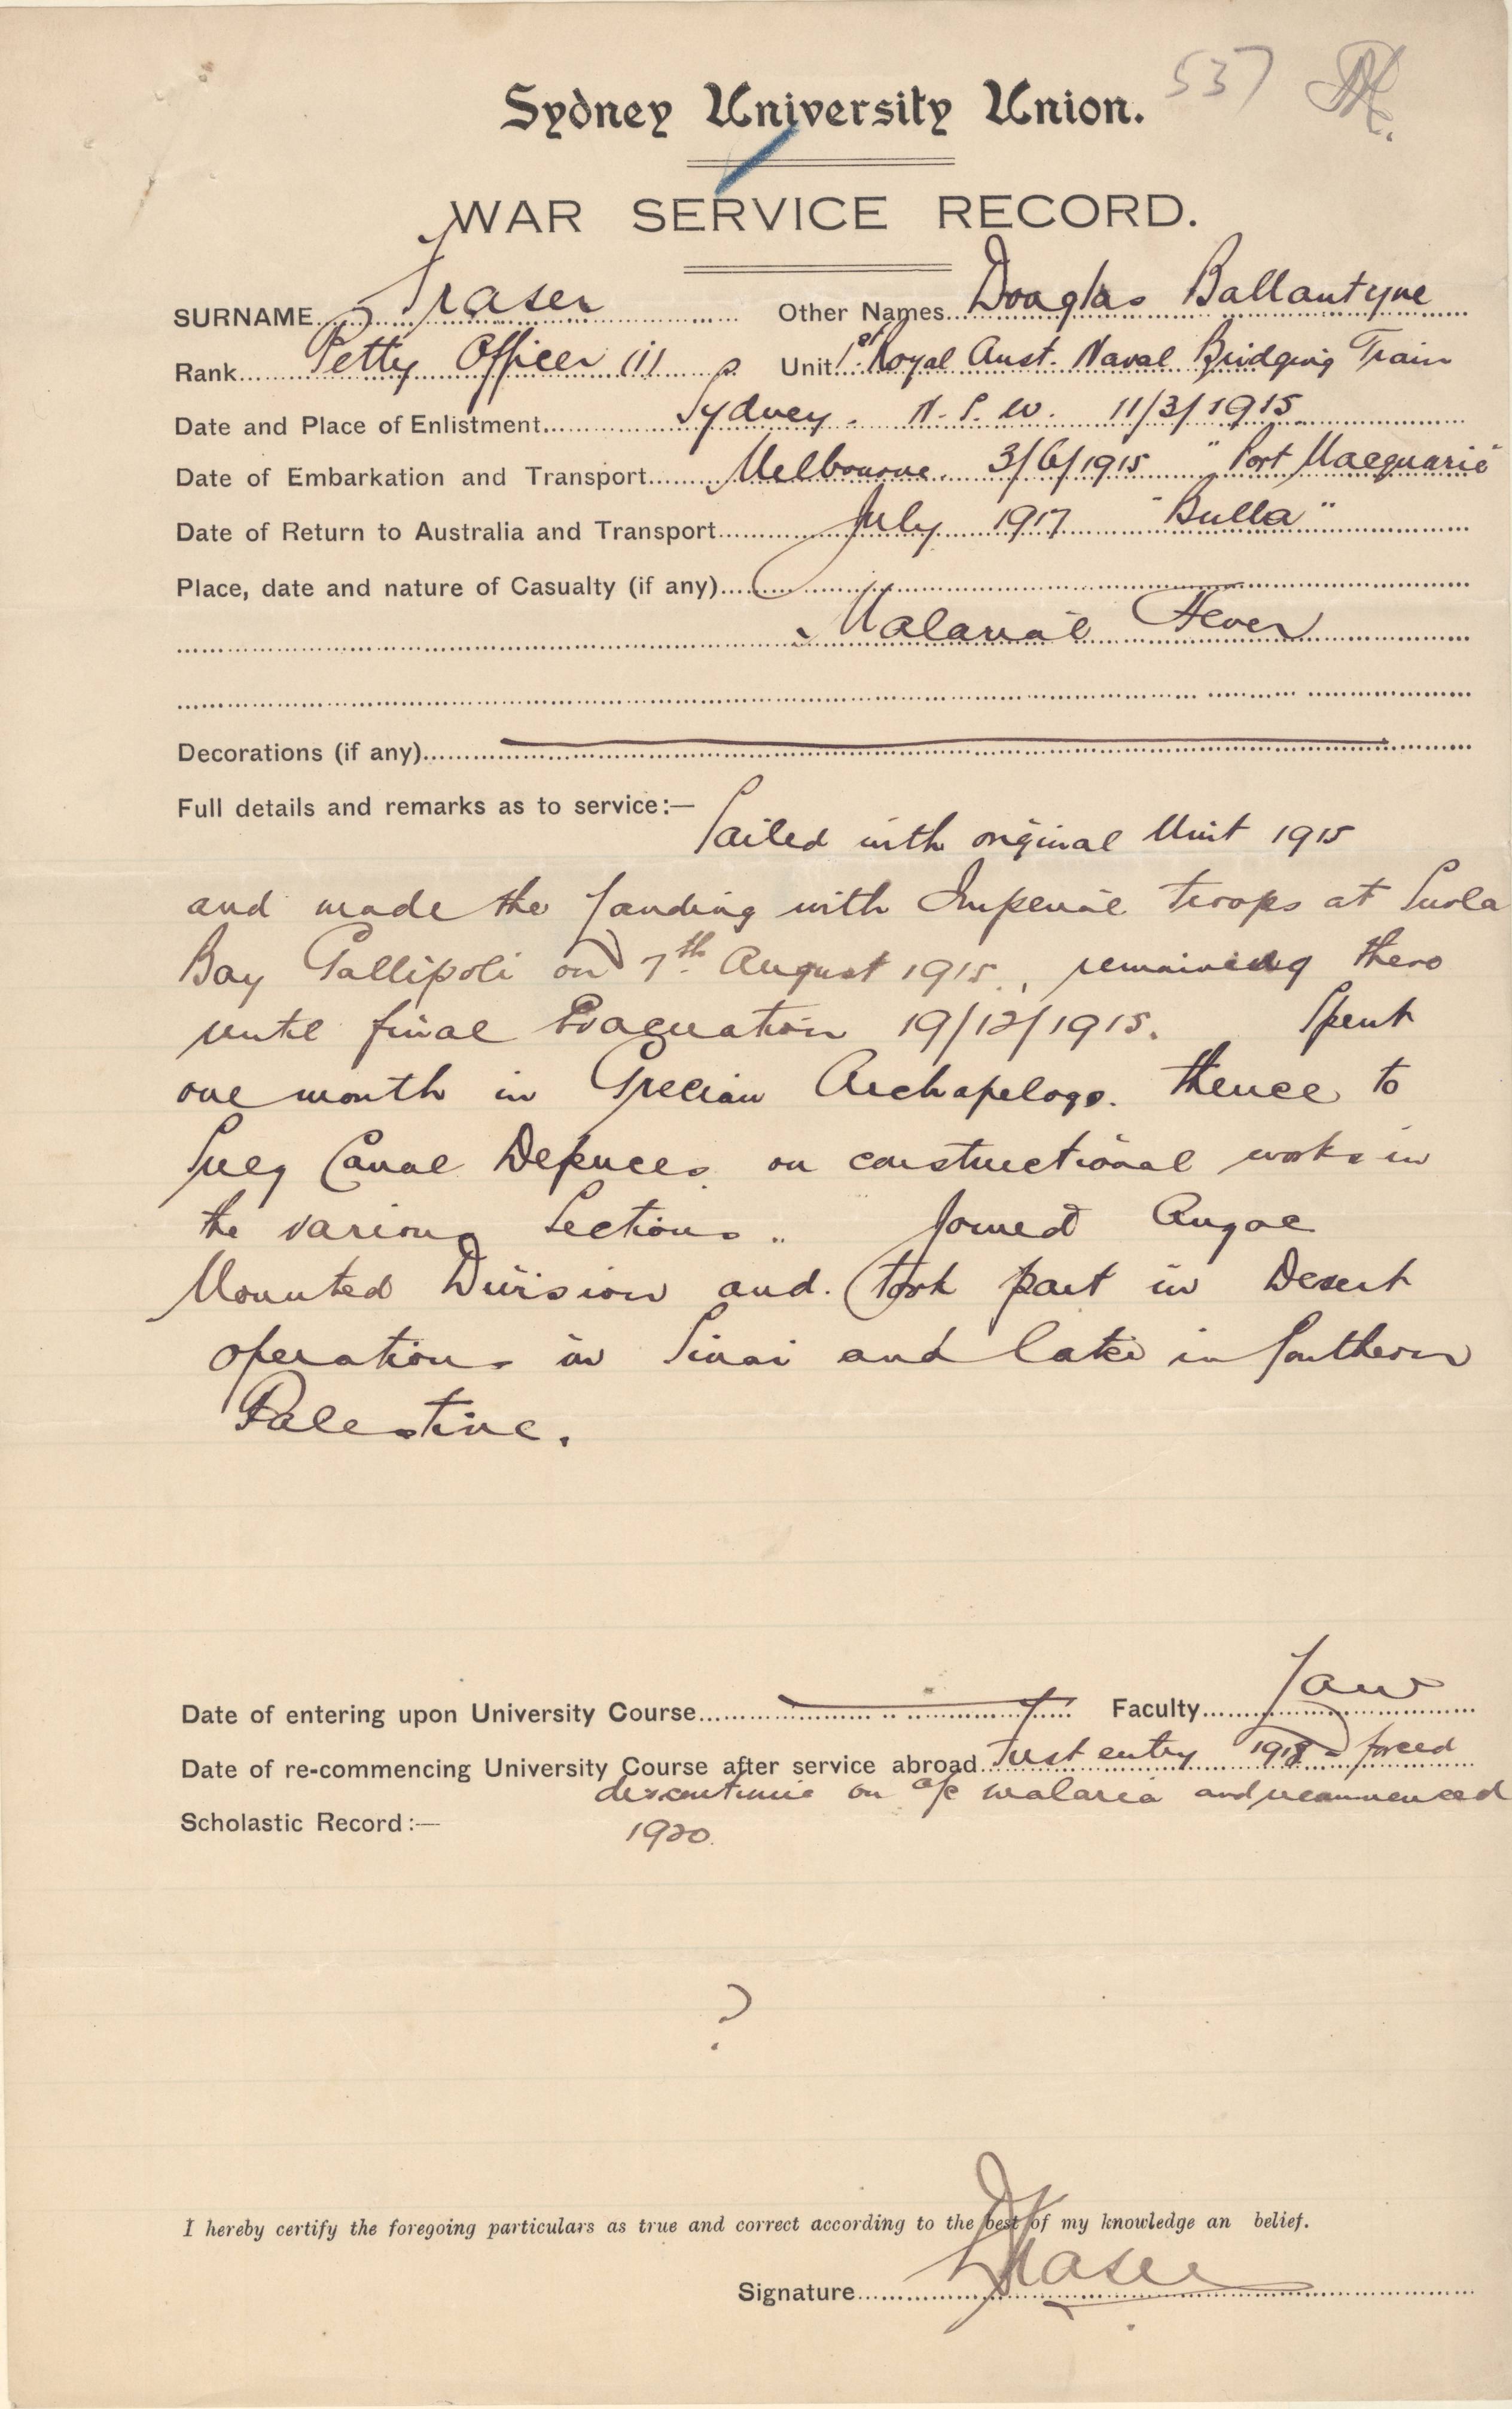 537
Sydney University Union.
WAR SERVICE RECORD.
SURNAME Fraser Other Names Douglas Ballantyne
Rank Petty Officer (i) Unit 1st Royal Aust. Naval Bridging Train
Date and Place of Enlistment Sydney. N.S.W. 11/3/1915
Date of Embarkation and Transport Melbourne. 3/6/1915 "Port Macquarie"
Date of Return to Australia and Transport July 1917 "Bulla"
Place, date and nature of Casualty (if any)
Malarial Fever
Decorations (if any)
Full details and remarks as to service:— Sailed with original Unit 1915
and made the Landing with Imperial troops at Suvla
Bay Gallipoli on 7th August 1915, remaining there
until final Evacuation 19/12/1915. Spent
one month in Grecian Archapelogo. thence to
Suez Canal Defences on constructional works in
the various Sections.. Joined Anzac
Mounted Division and took part in Desert
operations in Sinai and later in Southern
Palestine.
Date of entering upon University Course Faculty Law
Date of re-commencing University Course after service abroad First entry 1918 - forced
discontinue on a/c malaria and recommenced
Scholastic Record:— 1920.
?
I hereby certify the foregoing particulars as true and correct according to the best of my knowledge an belief.
Signature DFraser